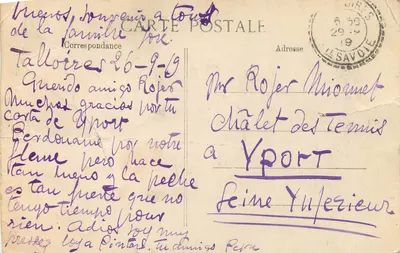 buenos, souvenirs a tous
de la famille José
CARTE POSTALE
Correspondance
Adresse
Talloires 26-9-19
Querido amigo Rojer
Muchas gracias por tu
carta de Yport
Perdoname por notre
fleme pero hace
tan bueno y la peche
es tan fuerte que no
tengo tiempo pour
rien. Adios soy muy
presse Tu amigo Pepa
6 30
29 9
19
HTE SAVOIE
Mr Rojer Mionnet
Châlet des Tennis
a YPORT
Seine Ynferieur